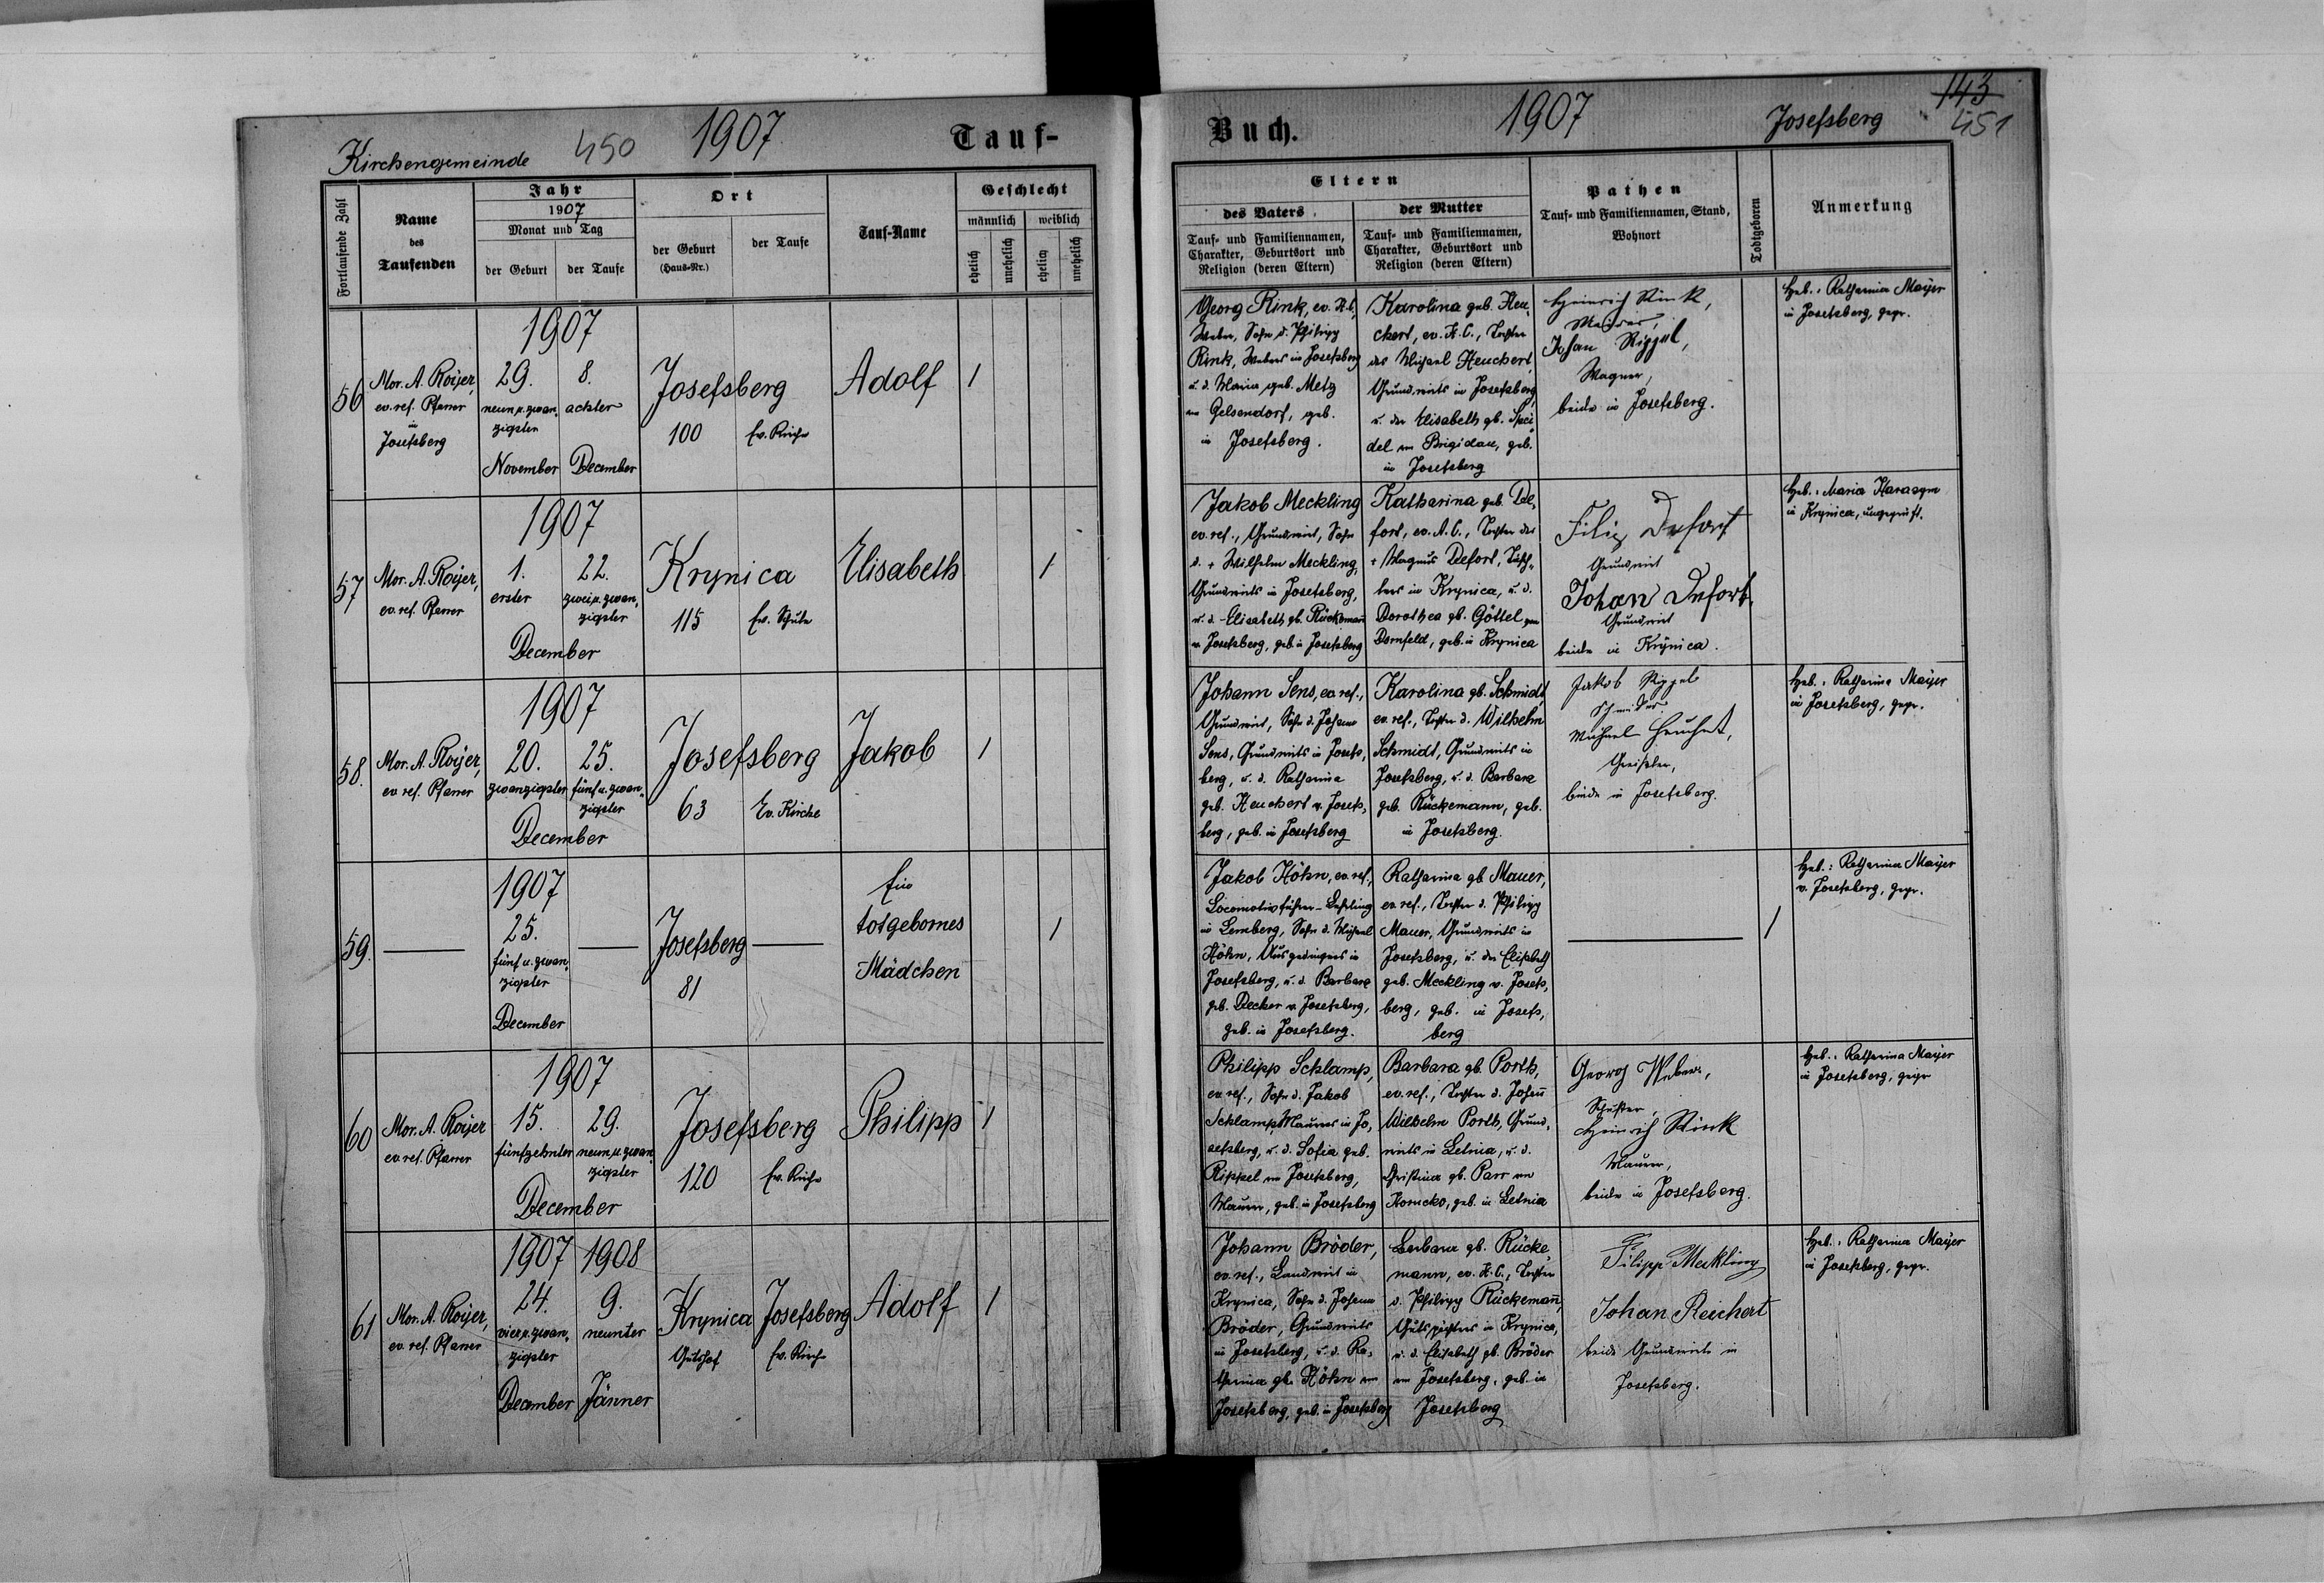 Kirchengemeinde 450 1907 Tauf-
Fortlaufende Zahl
Name
des
Taufenden
Jahr
1907
Monat und Tag
der Geburt
der Taufe
Ort
der Geburt
(Haus-Nr.)
der Taufe
Tauf-Name
Geschlecht
männlich
weiblich
ehelich
unehelich
ehelich
unehelich
56
Mor. A. Royer,
ev. ref. Pfarrer
in
Josefsberg
1907
29. 8.
neun u. zwan- achter
zigster
November December
Josefsberg
100 Ev. Kirche
Adolf
1
57
Mor. A. Royer,
ev. ref. Pfarrer
1907
1. 22.
erster zwei u. zwan-
zigster
December
Krynica
115 Ev. Schule
Elisabeth
1
58.
Mor. A. Royer,
ev. ref. Pfarrer
1907
20. 25.
zwanzigster fünf u. zwan-
zigster
December
Josefsberg
63 Ev. Kirche
Jakob
1
59.
1907
25.
fünf u. zwan-
zigster
December
Josefsberg
81
Ein
totgebornes
Mädchen
1
60
Mor. A. Royer
ev. ref. Pfarrer
1907
15. 29.
fünfzehnter neun u. zwan-
zigster
December
Josefsberg
120 Ev. Kirche
Philipp
1
61
Mor. A. Royer,
ev. ref. Pfarrer
1907 1908
24. 9.
vier u. zwan- neunter
zigster
December Jänner
Krynica Josefsberg
Gutshof Ev. Kirche
Adolf
1
Buch. 1907 Josefsberg 143
451
Eltern
des Vaters
Tauf- und Familiennamen,
Charakter, Geburtsort und
Religion (deren Eltern)
der Mutter
Tauf- und Familiennamen,
Charakter, Geburtsort und
Religion (deren Eltern)
Pathen
Tauf- und Familiennamen, Stand,
Wohnort
Todtgeboren
Anmerkung
Georg Rink, ev. H. C.,
Weber, Sohn d. Philipp
Rink, Webers in Josefsberg
u. d. Maria geb. Metz
von Gelsendorf, geb.
in Josefsberg.
Karolina geb. Heu-
chert, ev. H. C., Tochter
des Michael Heuchert,
Grundwirts in Josefsberg,
u. der Elisabeth gb. Spei-
del von Brigidau, geb.
in Josefsberg
Heinrich Rink,
Maurer,
Johan Rippel,
Wagner,
beide in Josefsberg.
Heb.: Katharina Mayer
in Josefsberg, gepr.
Jakob Meckling
ev. ref., Grundwirt, Sohn
d. + Wilhelm Meckling,
Grundwirts in Josefsberg,
u. d. Elisabeth gb. Rückemann
v. Josefsberg, geb. in Josefsberg
Katharina geb. De-
fort, ev. A. C., Tochter des
+ Magnus Defort, Tisch-
lers in Krynica, u. d.
Dorothea gb. Göttel von
Dornfeld, geb. in Krynica
Filip Defort
Grundwirt
Johan Defort,
Grundwirt
beide in Krynica.
Heb.: Maria Harasym
in Krynica, ungeprüft.
Johann Sens, ev. ref.,
Grundwirt, Sohn d. Johann
Sens, Grundwirts in Josefs-
berg, u. d. Katharina
geb. Heuchert v. Josefs-
berg, geb. in Josefsberg
Karolina gb. Schmidt,
ev. ref., Tochter d. Wilhelm
Schmidt, Grundwirts in
Josefsberg, u. d. Barbara
geb. Rückemann, geb.
in Josefsberg.
Jakob Rippel
Schneider
Michael Heuchert,
Greisler,
beide in Josefsberg.
Heb.: Katharina Mayer
in Josefsberg, gepr.
Jakob Höhn, ev. ref.,
Locomotivführer-Lehrling
in Lemberg, Sohn d. Michael
Höhn, Ausgedingers in
Josefsberg, u. d. Barbara
geb. Decker v. Josefsberg,
geb. in Josefsberg.
Katharina gb. Mauer,
ev. ref., Tochter d. Philipp
Mauer, Grundwirts in
Josefsberg, u. der Elisabeth
geb. Meckling v. Josefs-
berg, geb. in Josefs-
berg
1
Heb.: Katharina Mayer
v. Josefsberg, gepr.
Philipp Schlamp,
ev. ref., Sohn d. Jakob
Schlamp, Maurers in Jo-
sefsberg, u. d. Sofia geb.
Rippel von Josefsberg,
Maurer, geb. in Josefsberg
Barbara gb. Porth,
ev. ref., Tochter d. Johann
Wilhelm Porth, Grund-
wirts in Letnia, u. d.
Christina gb. Parr von
Horucko, geb. in Letnia
Georg Weber,
Schuster,
Heinrich Rink
Maurer,
beide in Josefsberg.
Heb.: Katharina Mayer
in Josefsberg, gepr
Johann Bröder,
ev. ref., Landwirt in
Krynica, Sohn d. Johann
Bröder, Grundwirts
in Josefsberg, u. d. Ka-
tharina gb. Höhn von
Josefsberg, geb. in Josefsberg
Barbara gb. Rücke-
mann, ev. H. C., Tochter
d. Philipp Rückemann,
Gutspächters in Krynica,
u. d. Elisabeth gb. Bröder
von Josefsberg, geb. in
Josefsberg
Filipp Meckling
Johan Reichert
beide Grundwirte in
Josefsberg.
Heb.: Katharina Mayer
in Josefsberg, gepr.